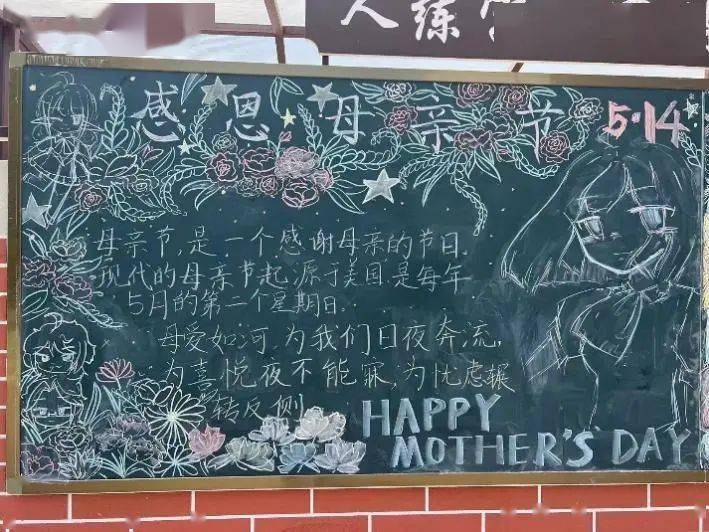 人练
感恩母亲节 5·14
母亲节,是一个感谢母亲的节日.
现代的母亲节起源于美国是每年
5月的第二个星期日.
母爱如河,为我们日夜奔流,
为喜悦夜不能寐,为忧虑辗
转反侧
HAPPY
MOTHER'S DAY